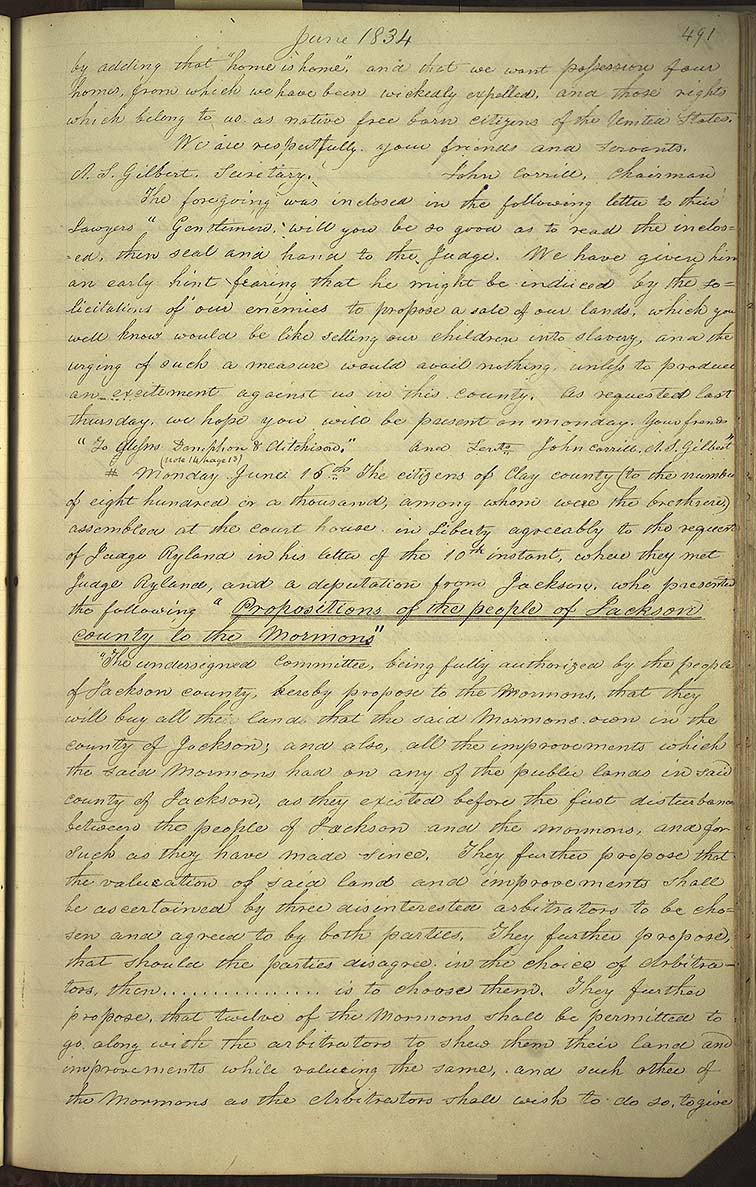 June 1834
491
by adding that "home is home", and that we want possession of our
homes, from which we have been wickedly expelled, and those rights
which belong to us as native free born citizens of the United States.
We are respectfully your friends and servants.
A. S. Gilbert, Secretary. John Corrill, Chairman
The foregoing was inclosed in the following letter to their
Lawyers "Gentlemen, will you be so good as to read the inclos=
=ed, then seal and hand to the Judge. We have given him
an early hint fearing that he might be induced by the so=
licitations of our enemies to propose a sale of our lands, which you
well know would be like selling our children into slavery, and the
urging of such a measure would avail nothing unless to produce
an excitement against us in this county. As requested last
thursday, we hope you will be present on monday. Your friends
"To Messrs Doniphon & Atchison." and Servts John Corrill, A. S. Gilbert"
(note 14 page 13)
# Monday June 16th The citizens of Clay county (to the number
of eight hundred or a thousand, among whom were the brethren)
assembled at the court house in Liberty agreeably to the request
of Judge Ryland in his letter of the 10th instant, where they met
Judge Ryland, and a deputation from Jackson, who presented
the following "Propositions of the people of Jackson
county to the Mormons"
"The undersigned Committee, being fully authorized by the people
of Jackson county, hereby propose to the Mormons, that they
will buy all the land that the said Mormons own in the
county of Jackson; and also, all the improvements which
the said Mormons had on any of the public lands in said
county of Jackson, as they existed before the first disturbance
between the people of Jackson and the mormons, and for
such as they have made since. They further propose that
the valuation of said land and improvements shall
be ascertained by three disinterested arbitrators to be cho=
sen and agreed to by both parties. They further propose,
that should the parties disagree in the choice of Arbitra=
tors, then ................ is to choose them. They further
propose, that twelve of the Mormons shall be permitted to
go along with the arbitrators to shew them their land and
improvements while valueing the same, and such other of
the Mormons as the Arbitrators shall wish to do so, to give